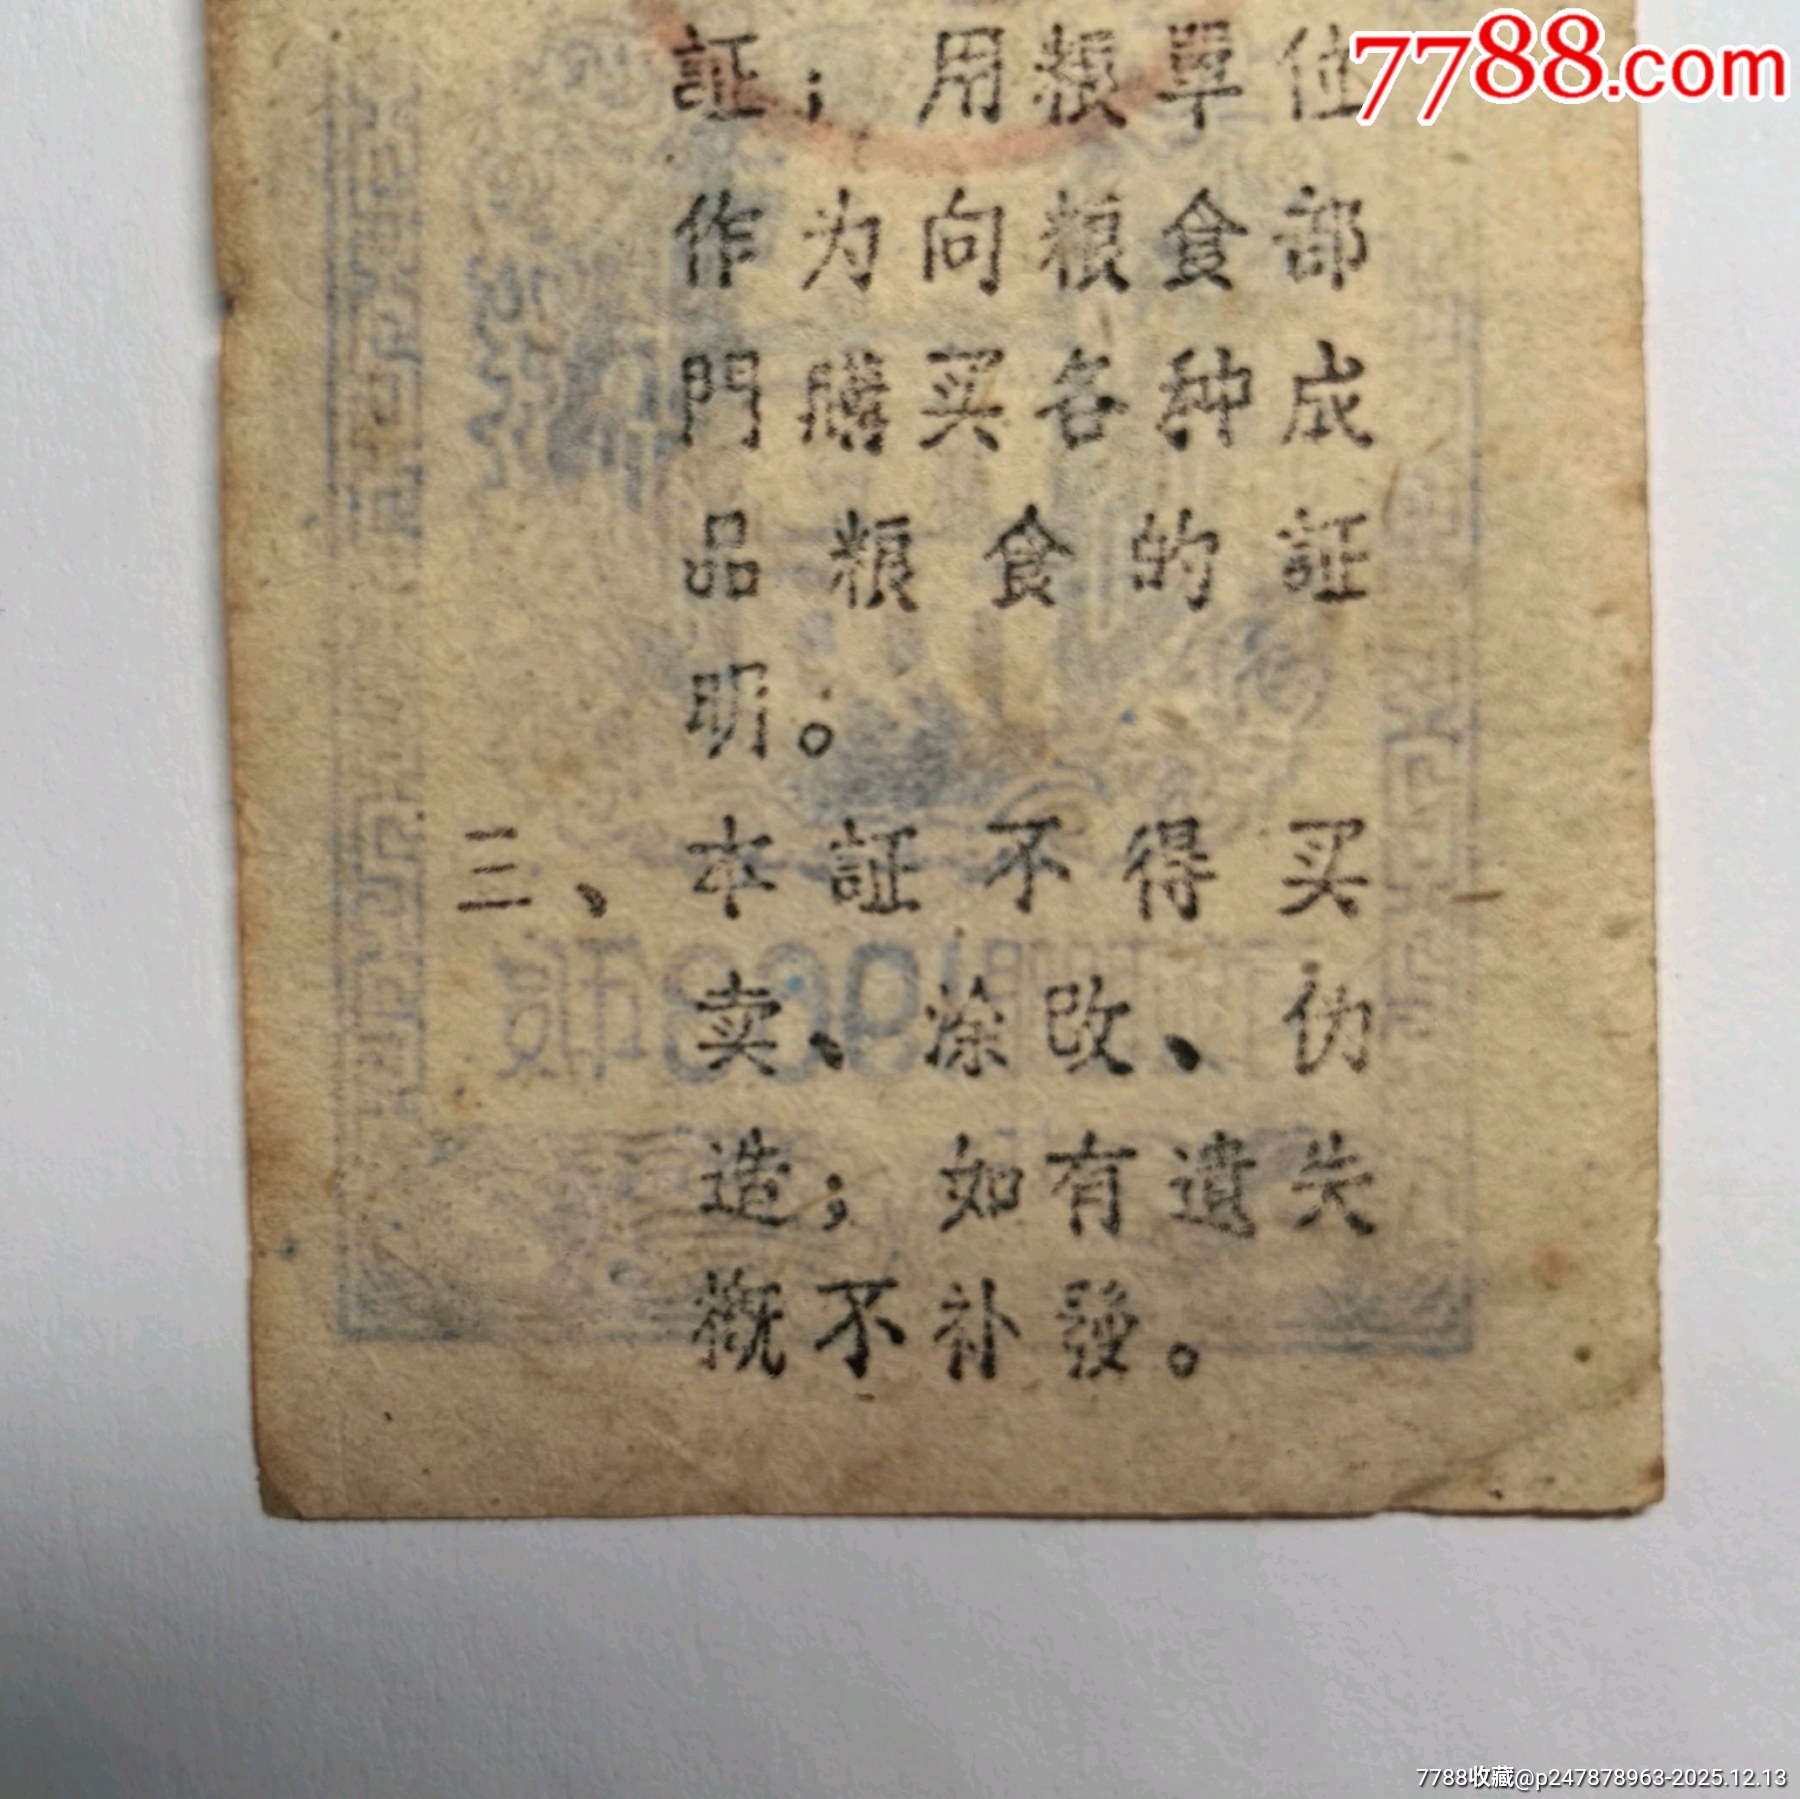 7788.com
証；用粮單位
作为向粮食部
門購买各种成
品粮食的証
明。
三、本証不得买
卖、涂改、伪
造；如有遺失
概不补發。
7788收藏@p247878963-2025.12.13